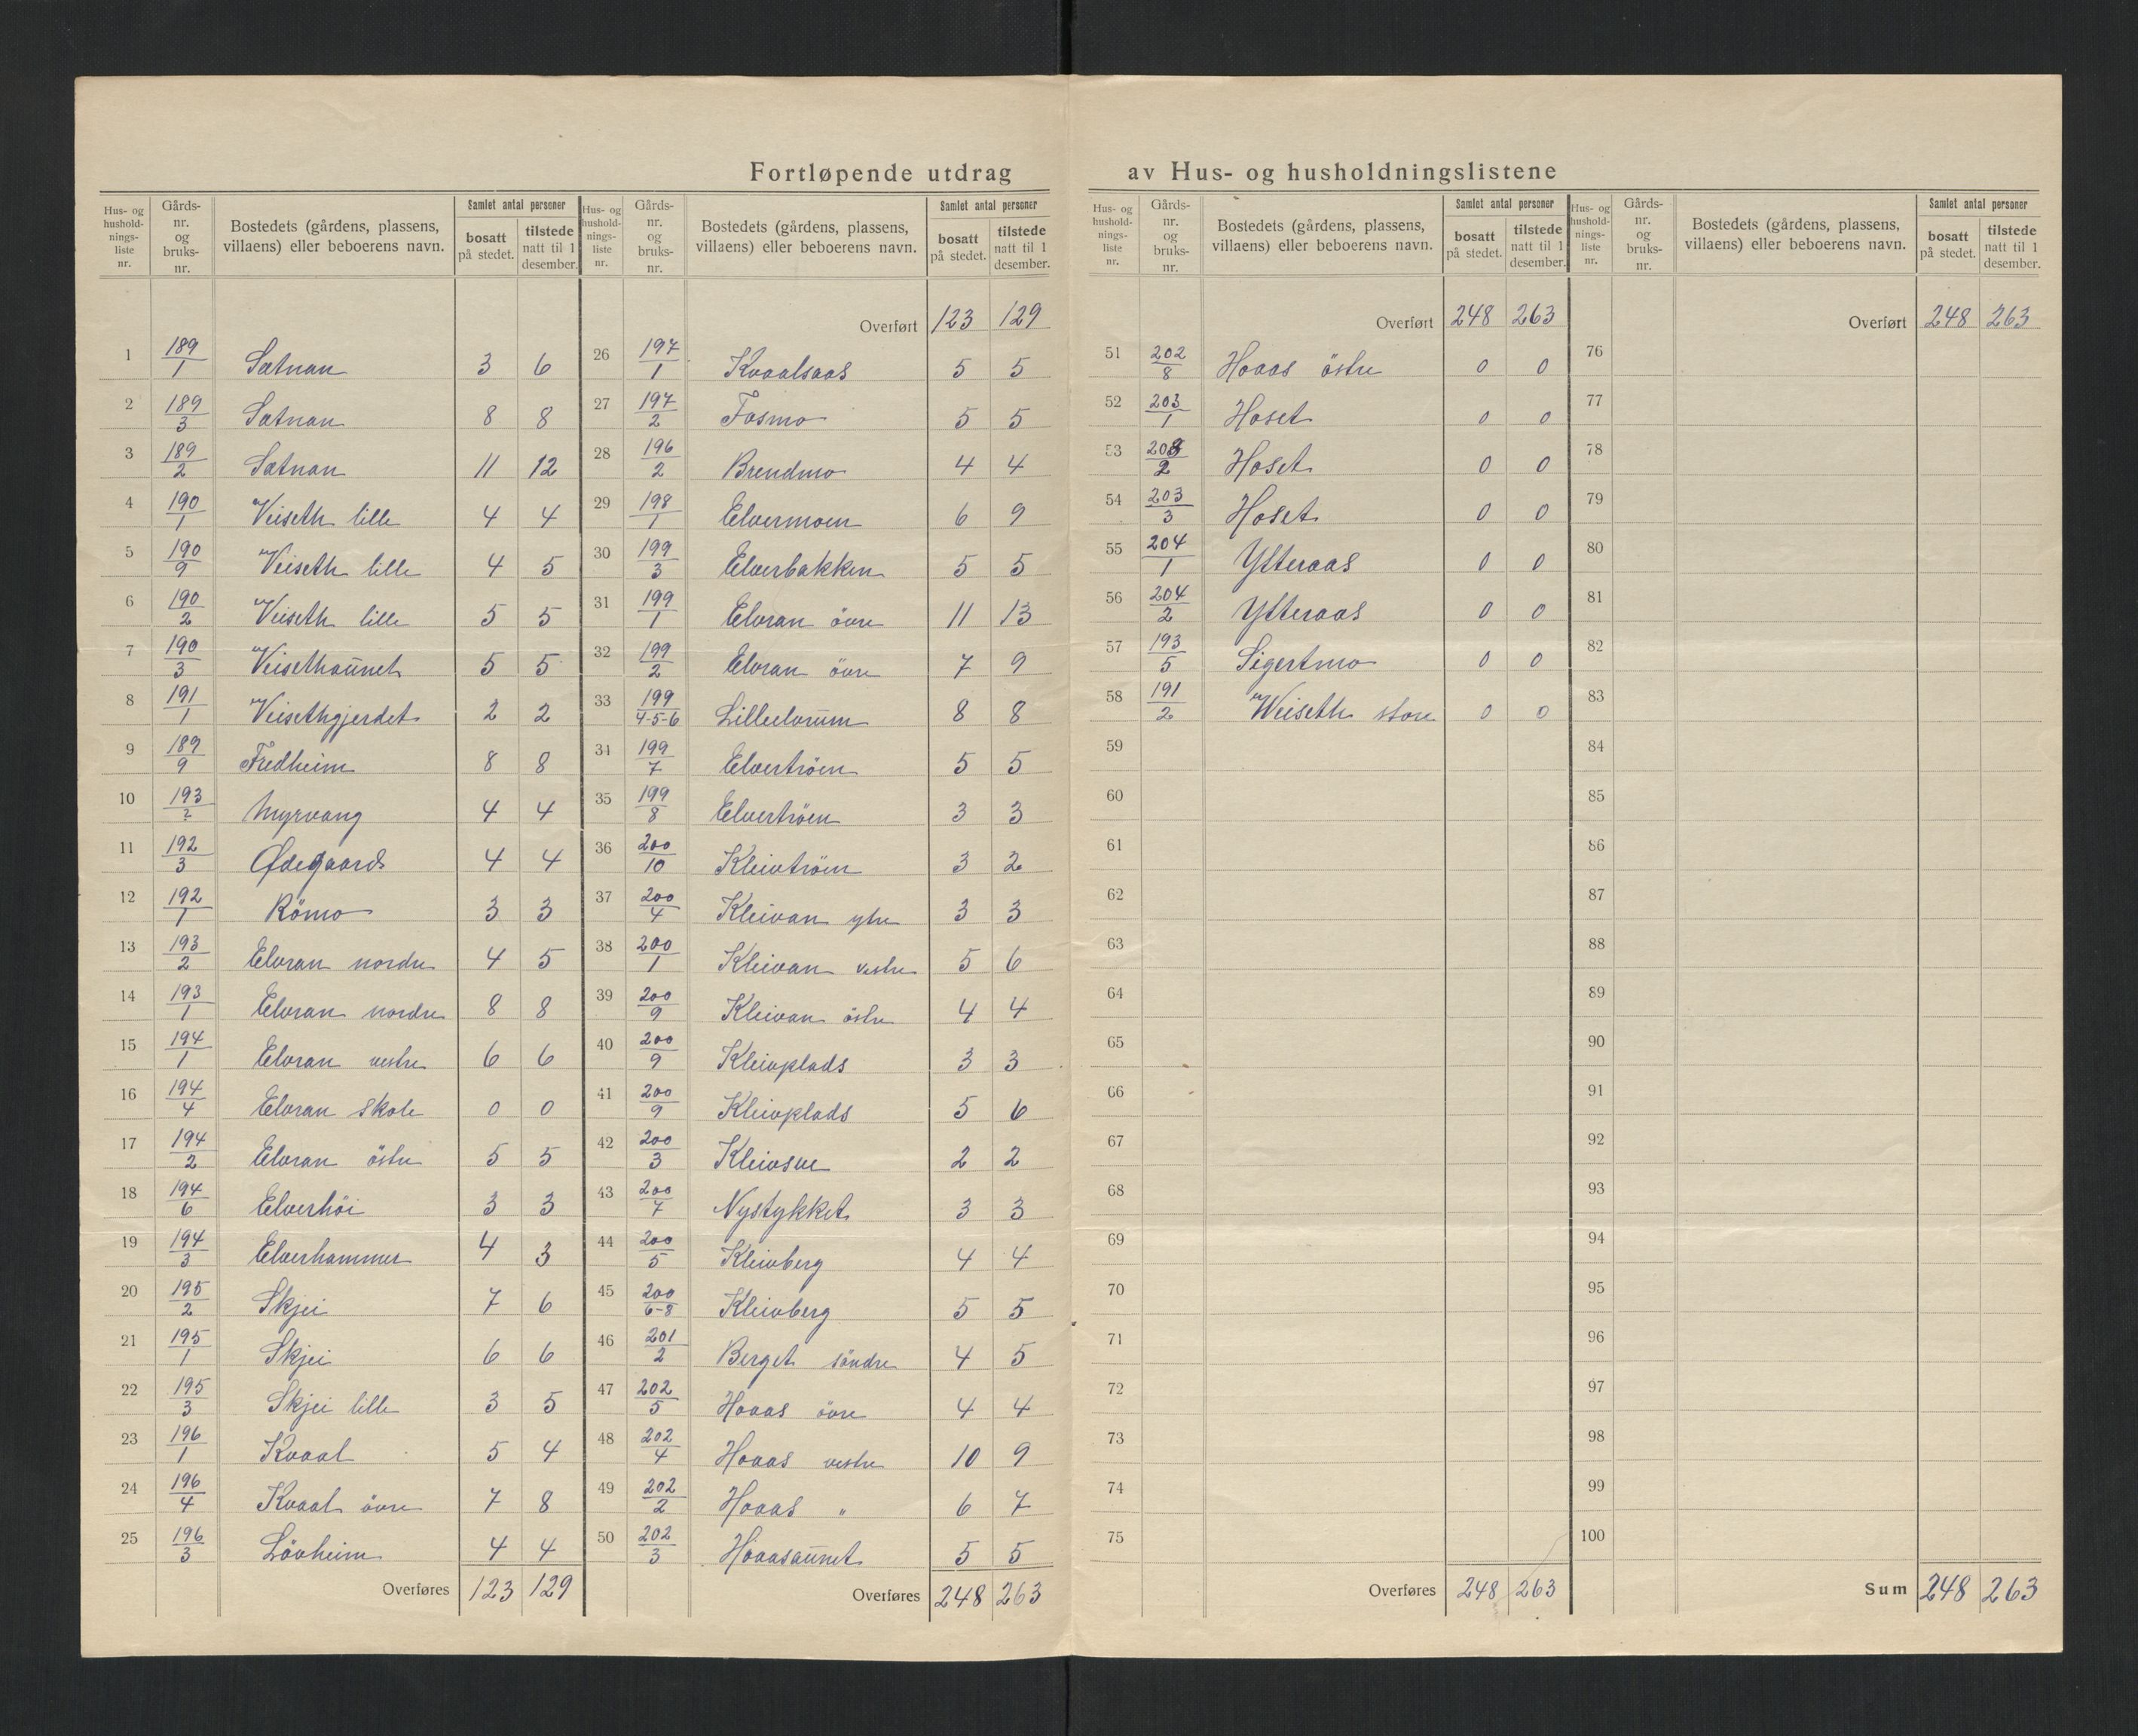 Fortløpende utdrag av Hus- og husholdningslistene
Hus- og hushold-nings-liste nr. | Gårds-nr. og bruks-nr. | Bostedets (gårdens, plassens, villaens) eller beboerens navn. | Samlet antal personer | bosatt på stedet. | tilstede natt til 1 desember.
1 189/1 Sætnan 3 6
2 189/3 Sætnan 8 8
3 189/2 Sætnan 11 12
4 190/1 Veiseth lille 4 4
5 190/9 Veiseth lille 4 5
6 190/2 Veiseth lille 5 5
7 190/3 Veisethaunet 5 5
8 191/1 Veisethgjerdet 2 2
9 189/9 Fredheim 8 8
10 193/? Myrvang 4 4
11 192/3 Ødegaard 4 4
12 192/1 Römo 3 3
13 193/2 Elvran nordre 4 5
14 193/1 Elvran nordre 8 8
15 194/1 Elvran vestre 6 6
16 194/4 Elvran skole 0 0
17 194/2 Elvran östre 5 5
18 194/6 Elverhöi 3 3
19 194/3 Elverhammer 4 3
20 195/2 Skjei 7 6
21 195/1 Skjei 6 6
22 195/3 Skjei lille 3 5
23 196/1 Kvaal 5 4
24 196/4 Kvaal övre 7 8
25 196/3 Lövheim 4 4
Overføres 123 129
Hus- og hushold-nings-liste nr. | Gårds-nr. og bruks-nr. | Bostedets (gårdens, plassens, villaens) eller beboerens navn. | Samlet antal personer | bosatt på stedet. | tilstede natt til 1 desember.
Overført 123 129
26 197/1 Kvaalsaas 5 5
27 197/2 Fosmo 5 5
28 196/2 Brendmo 4 4
29 198/1 Elvermoen 6 9
30 199/3 Elverbakken 5 5
31 199/1 Elvran övre 11 13
32 199/2 Elvran övre 7 9
33 199/4-5-6 Lilleelvrum 8 8
34 199/7 Elvertröen 5 5
35 199/8 Elvertröen 3 3
36 200/10 Kleivtröen 3 2
37 200/4 Kleivan ytre 3 3
38 200/1 Kleivan vestre 5 6
39 200/9 Kleivan östre 4 4
40 200/9 Kleivplads 3 3
41 200/9 Kleivplads 5 6
42 200/3 Kleivsve 2 2
43 200/7 Nystykket 3 3
44 200/5 Kleivberg 4 4
45 200/6-8 Kleivberg 5 5
46 201/2 Berget söndre 4 5
47 202/5 Hoaas övre 4 4
48 202/4 Hoaas vestre 10 9
49 202/2 Hoaas " 6 7
50 202/3 Hoaasaunet 5 5
Overføres 248 263
Hus- og hushold-nings-liste nr. | Gårds-nr. og bruks-nr. | Bostedets (gårdens, plassens, villaens) eller beboerens navn. | Samlet antal personer | bosatt på stedet. | tilstede natt til 1 desember.
Overført 248 263
51 202/8 Hoaas östre 0 0
52 203/1 Hoset 0 0
53 203/2 Hoset 0 0
54 203/3 Hoset 0 0
55 204/1 Ytteraas 0 0
56 204/2 Ytteraas 0 0
57 193/5 Sigertmo 0 0
58 191/2 Weiseth store 0 0
59
60
61
62
63
64
65
66
67
68
69
70
71
72
73
74
75
Overføres 248 263
Hus- og hushold-nings-liste nr. | Gårds-nr. og bruks-nr. | Bostedets (gårdens, plassens, villaens) eller beboerens navn. | Samlet antal personer | bosatt på stedet. | tilstede natt til 1 desember.
Overført 248 263
76
77
78
79
80
81
82
83
84
85
86
87
88
89
90
91
92
93
94
95
96
97
98
99
100
Sum 248 263